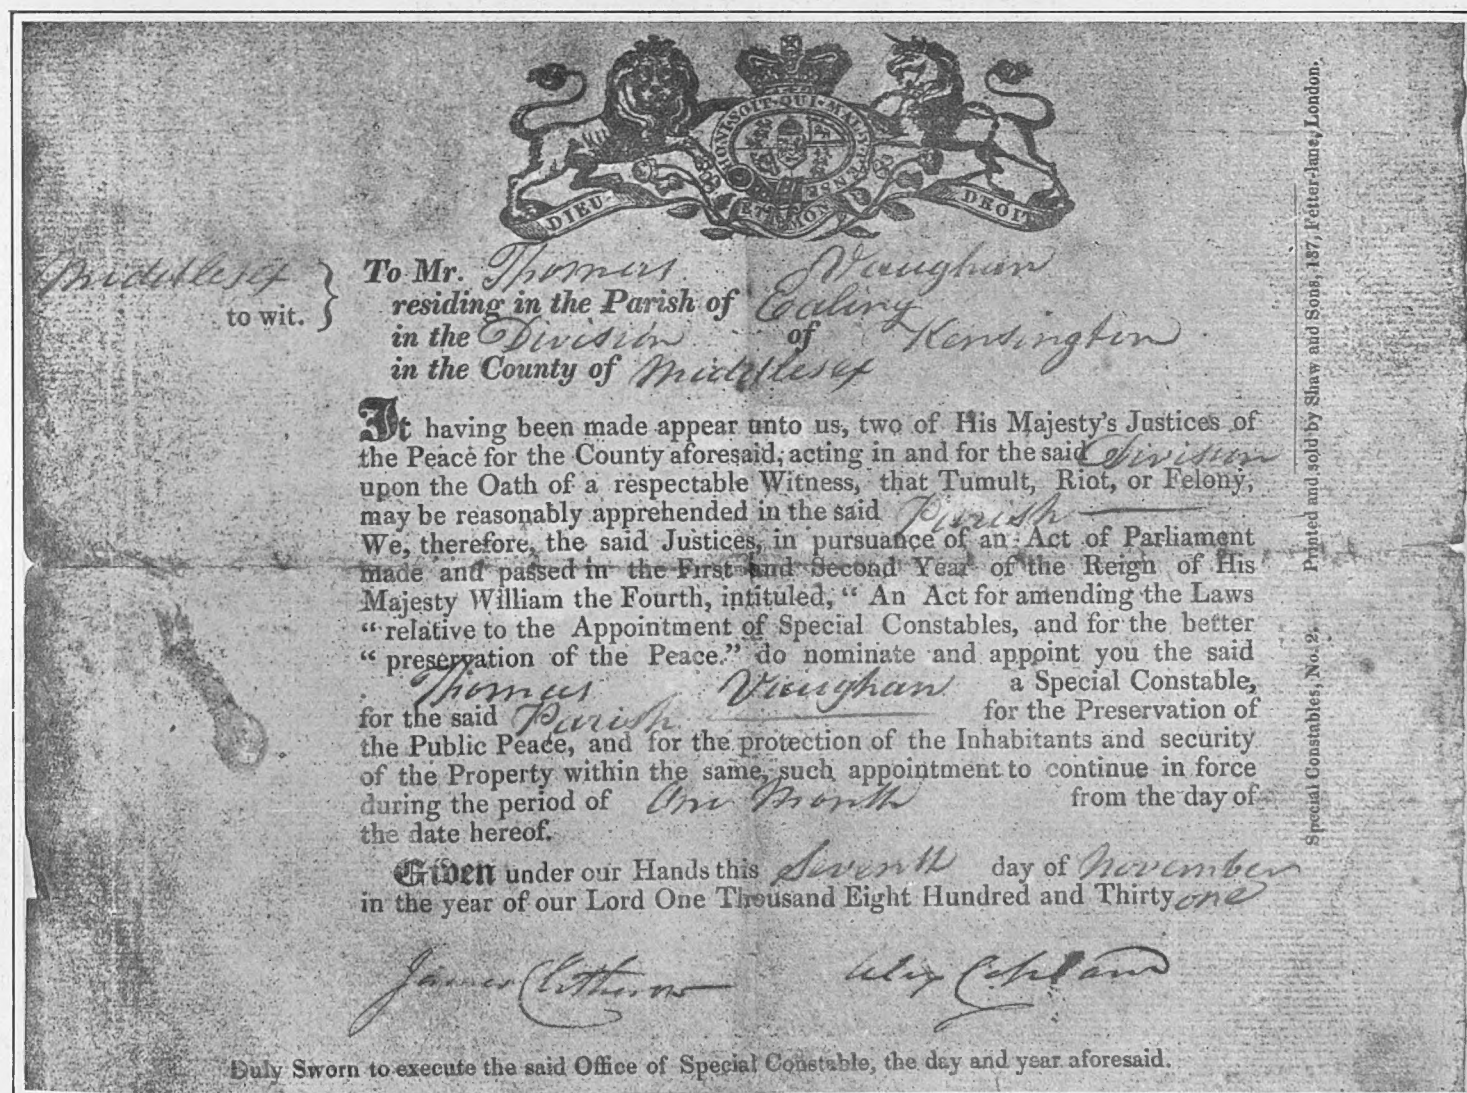 HONI·SOIT·QUI·MAL·Y·PENSE
DIEU· ET MON DROIT
Middlesex
to wit.
To Mr. Thomas Vaughan
residing in the Parish of Ealing
in the Division of Kensington
in the County of Middlesex
It having been made appear unto us, two of His Majesty's Justices of
the Peace for the County aforesaid, acting in and for the said Division
upon the Oath of a respectable Witness, that Tumult, Riot, or Felony,
may be reasonably apprehended in the said Parish
We, therefore, the said Justices, in pursuance of an Act of Parliament
made and passed in the First and Second Year of the Reign of His
Majesty William the Fourth, intituled, “ An Act for amending the Laws
“ relative to the Appointment of Special Constables, and for the better
“ preservation of the Peace.” do nominate and appoint you the said
Thomas Vaughan a Special Constable,
for the said Parish for the Preservation of
the Public Peace, and for the protection of the Inhabitants and security
of the Property within the same, such appointment to continue in force
during the period of One Month from the day of
the date hereof.
Given under our Hands this Seventh day of November
in the year of our Lord One Thousand Eight Hundred and Thirty one
James Clitherow Alex Copland
Duly Sworn to execute the said Office of Special Constable, the day and year aforesaid.
Special Constables, No. 2. Printed and sold by Shaw and Sons, 137, Fetter-lane, London.